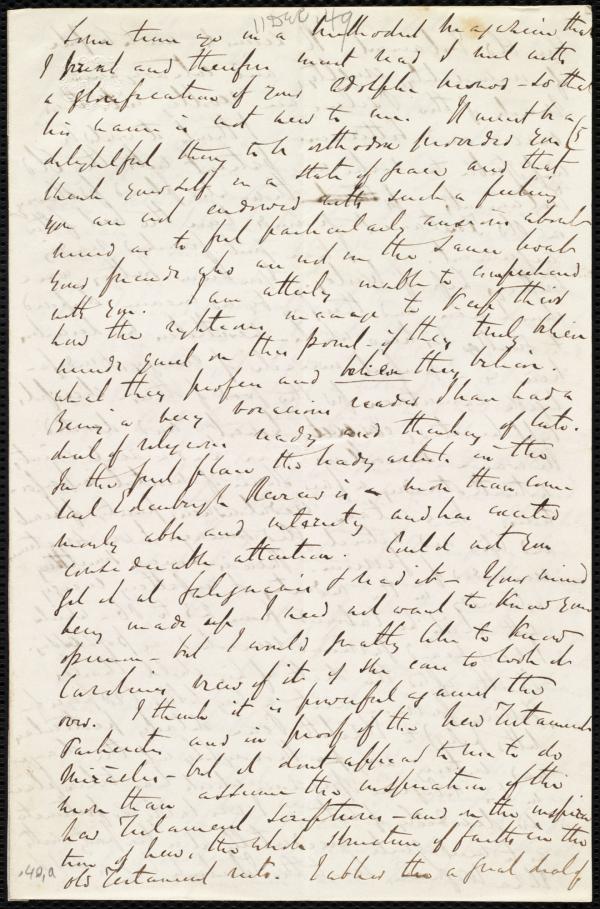 11 Dec /49
Some time ago in a Methodist Magazine that
I print and therefore must read I met with
a glorification of your Adolphe Monod - so that
his name is not new to me. It must be a
delightful thing to be orthodox provided you
think yourself in a state of grace and that
you are not endowed with such a feeling
mind as to feel particularly anxious about
your friends who are not in the same boat
with you. I am utterly unable to comprehend
how the righteous manage to keep their
minds quiet on this point - if they truly believe
what they profess and believe they believe.
Being a very voracious reader I have had a
deal of religious reading and thinking of late.
In the first place the leading article in the
last Edinburgh Review is a more than com
monly able and interesting and has excited
considerable attention. Could not you
get it at Galignani's & read it - Your mind
being made up I need not want to know your
opinion - but I would greatly like to know
Caroline's view of it if she care to look it
over. I think it is powerful against the
and in proof of the New Testament
Miracles - but it dont appear to me to do
more than assume the inspiration of the
New Testament Scriptures - and on the inspira
tion of new, the whole structure of faith in the
Old Testament rests. I also the a great deal of